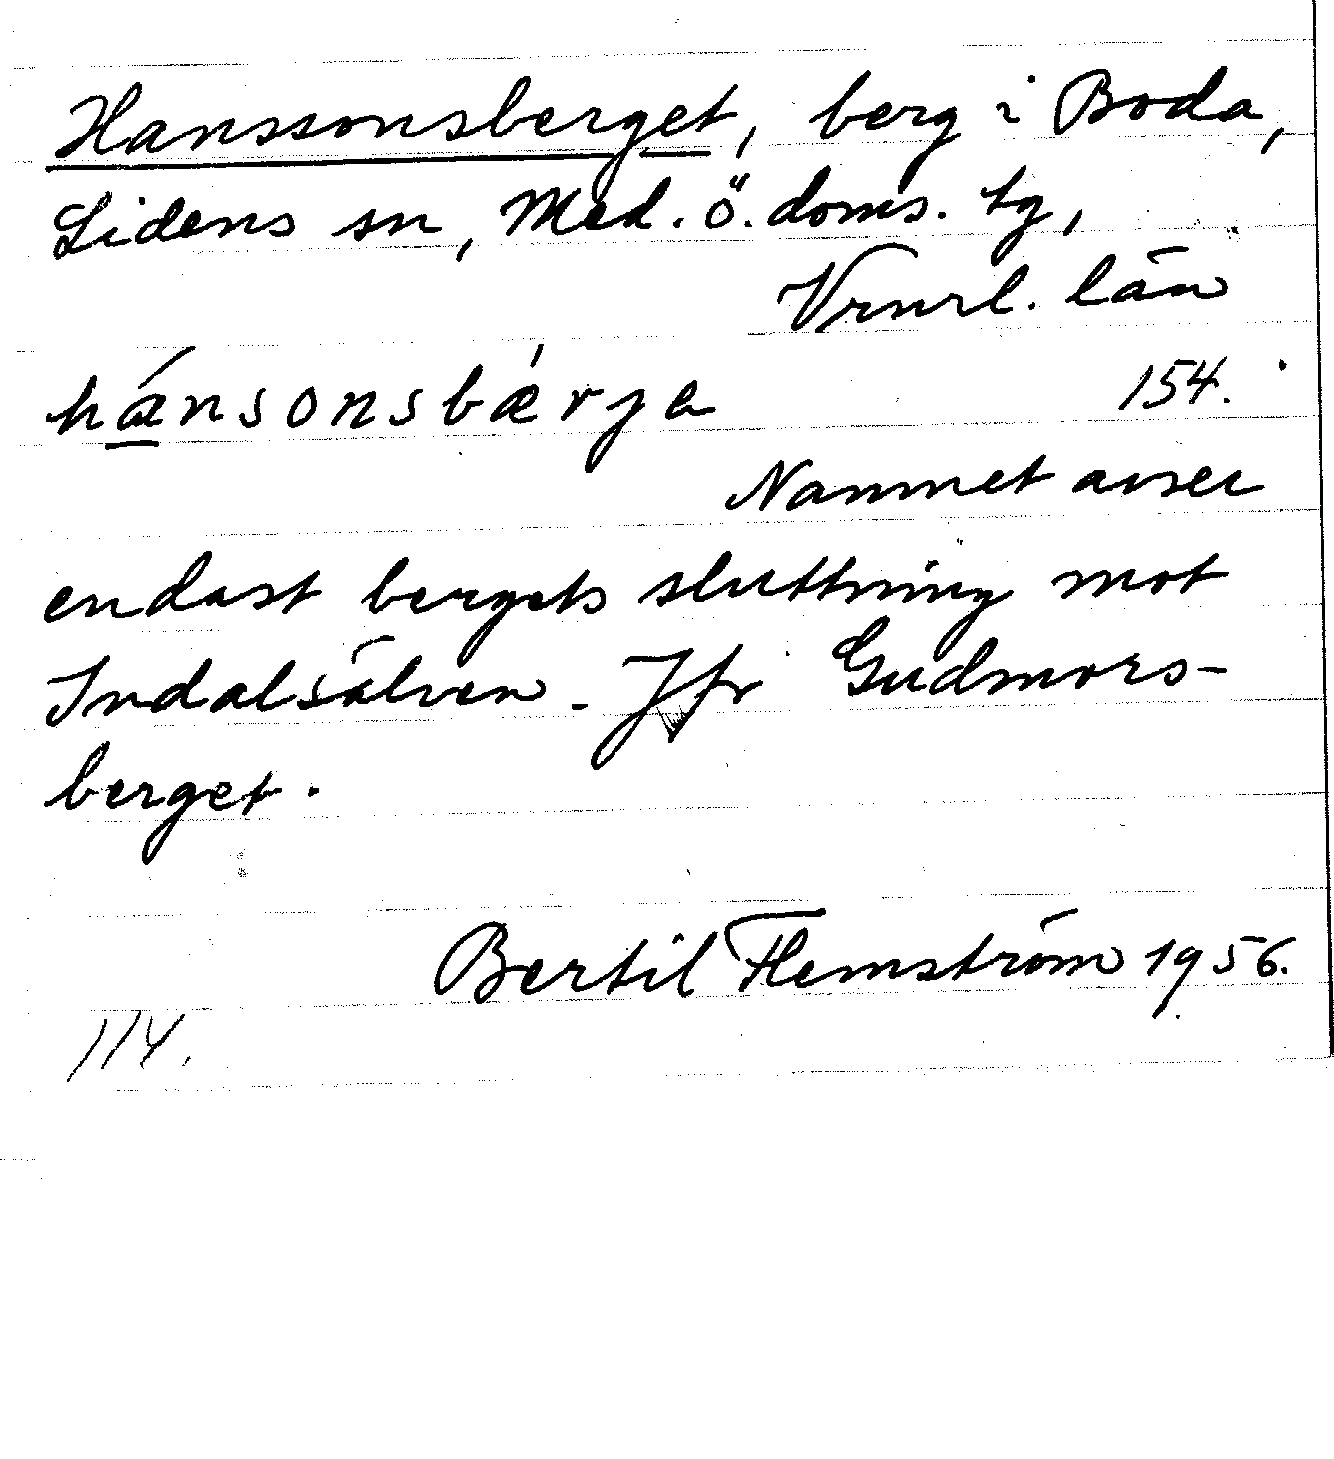 Hanssonsberget, berg i Boda,
Lidens sn, Med. ö. doms. tg,
Vrnrl. län
hǽnsonsbǽrje 154.
Namnet avser
endast bergets sluttning mot
Indalsälven. Jfr Gudmors-
berget.
Bertil Flemström 1956.
114.